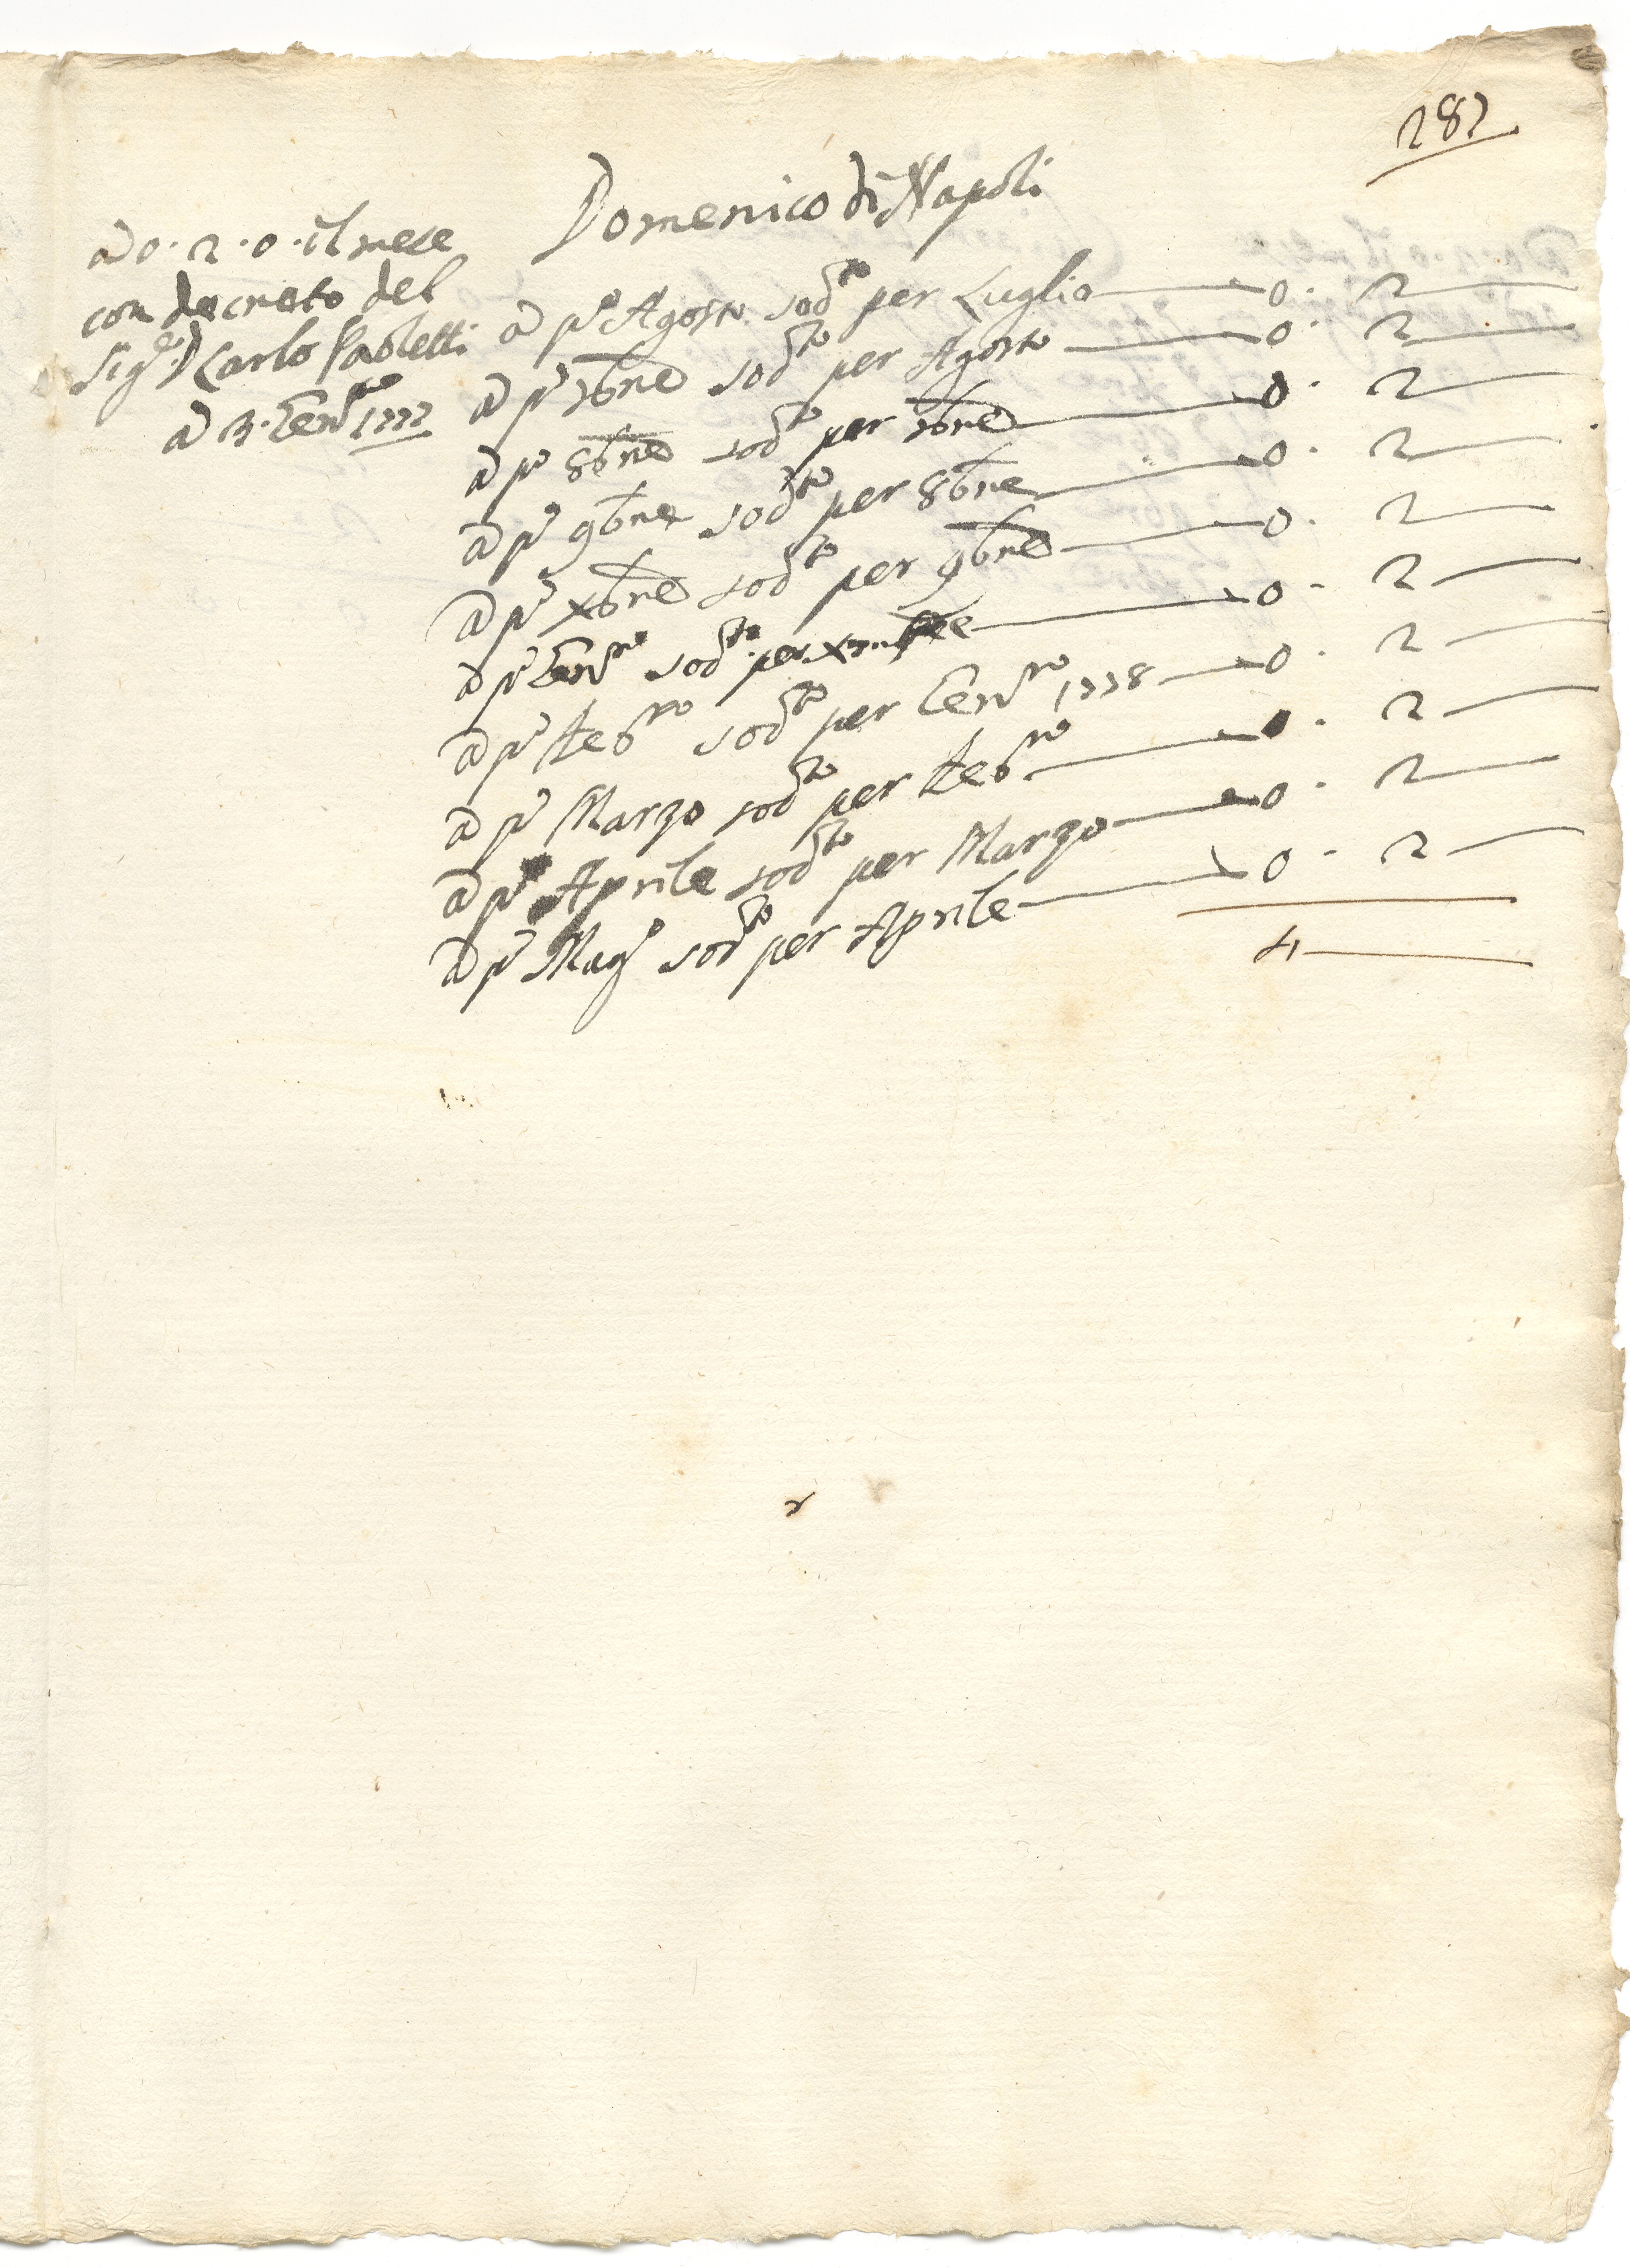 282
Domenico di Napoli
a 0.2.0. il mese
con decreto del
Sig.e D Carlo Paoletti
a 3. Gen.ro 1777
a p.o Agosto sod.to per Luglio 0. 2
a p.o 7bre sod.to per Agosto 0. 2
a p.o 8bre sod.to per 7bre 0. 2
a p.o 9bre sod.to per 8bre 0. 2
a p.o Xbre sod.to per 9bre 0. 2
a p.o Gen.ro sod.to per 0. 2
a p.o Feb.ro sod.to per Gen.ro 1778 0. 2
a p.o Marzo sod.to per Feb.ro 0. 2
a p.o Aprile sod.to per Marzo 0. 2
a p.o Mag.o sod.to per Aprile 0. 2
4